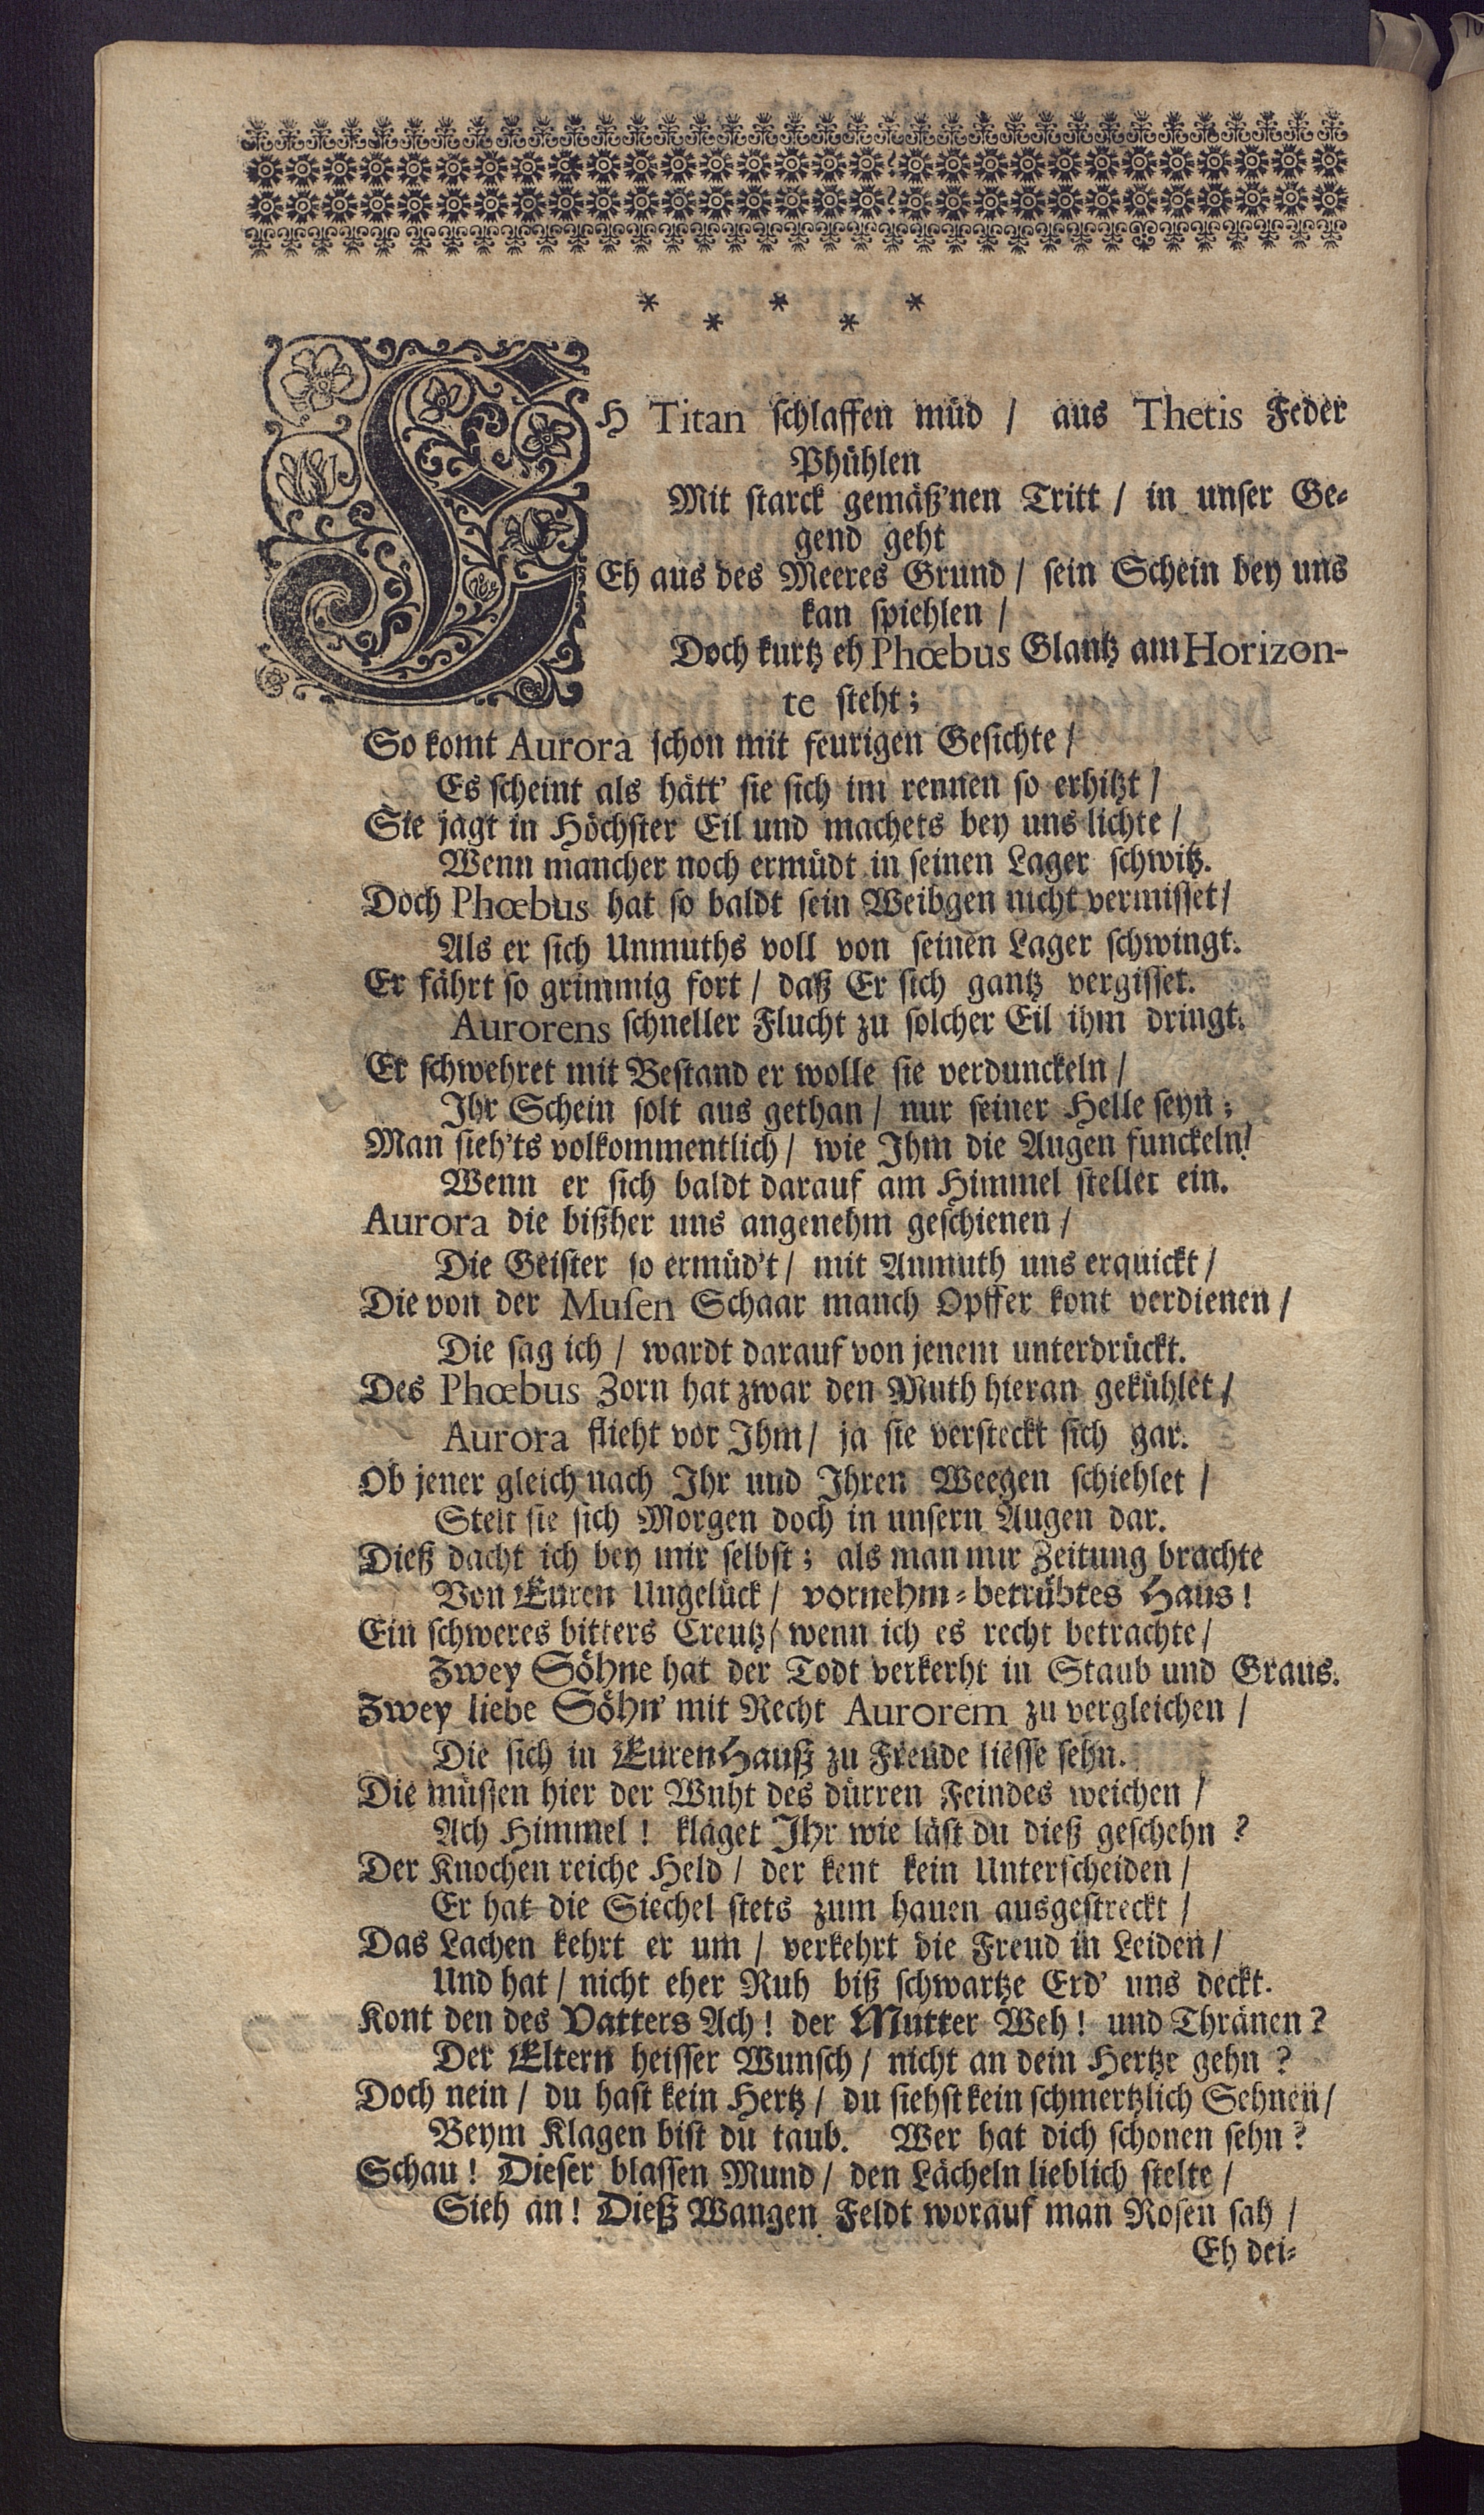 * * * * *
EH Titan schlaffen müd / aus Thetis Feder
Phühlen
Mit starck gemäß'nen Tritt / in unser Ge-
gend geht
Eh aus des Meeres Grund / sein Schein bey uns
kan spiehlen /
Doch kurtz eh Phœbus Glantz am Horizon-
te steht;
So komt Aurora schon mit feurigen Gesichte /
Es scheint als hätt' sie sich im rennen so erhitzt /
Sie jagt in Höchster Eil und machets bey uns lichte /
Wenn mancher noch ermüdt in seinen Lager schwitz.
Doch Phœbus hat so baldt sein Weibgen nicht vermisset /
Als er sich Unmuths voll von seinen Lager schwingt.
Er fährt so grimmig fort / daß Er sich gantz vergisset.
Aurorens schneller Flucht zu solcher Eil ihm dringt.
Er schwehret mit Bestand er wolle sie verdunckeln /
Ihr Schein solt aus gethan / nur seiner Helle seyn;
Man sieh'ts volkommentlich / wie Ihm die Augen funckeln!
Wenn er sich baldt darauf am Himmel stellet ein.
Aurora die bißher uns angenehm geschienen /
Die Geister so ermüd't / mit Anmuth uns erquickt /
Die von der Musen Schaar manch Opffer kont verdienen /
Die sag ich / wardt darauf von jenem unterdrückt.
Des Phœbus Zorn hat zwar den Muth hieran gekühlet /
Aurora flieht vor Ihm / ja sie versteckt sich gar.
Ob jener gleich nach Ihr und Ihren Weegen schiehlet /
Stelt sie sich Morgen doch in unsern Augen dar.
Dieß dacht ich bey mir selbst; als man mir Zeitung brachte
Von Euren Ungelück / vornehm-betrübtes Haus!
Ein schweres bitters Creutz / wenn ich es recht betrachte /
Zwey Söhne hat der Todt verkerht in Staub und Graus.
Zwey liebe Söhn' mit Recht Aurorem zu vergleichen /
Die sich in Euren Hauß zu Freude liesse sehn.
Die müssen hier der Wuht des dürren Feindes weichen /
Ach Himmel! klaget Ihr wie läst du dieß geschehn?
Der Knochen reiche Held / der kent kein Unterscheiden /
Er hat die Siechel stets zum hauen ausgestreckt /
Das Lachen kehrt er um / verkehrt die Freud in Leiden /
Und hat / nicht eher Ruh biß schwartze Erd' uns deckt.
Kont den des Vatters Ach! der Mutter Weh! und Thränen?
Der Eltern heisser Wunsch / nicht an dein Hertze gehn?
Doch nein / du hast kein Hertz / du siehst kein schmertzlich Sehnen /
Beym Klagen bist du taub. Wer hat dich schonen sehn?
Schau! Dieser blassen Mund / den Lächeln lieblich stelte /
Sieh an! Dieß Wangen Feldt worauf man Rosen sah /
Eh dei-